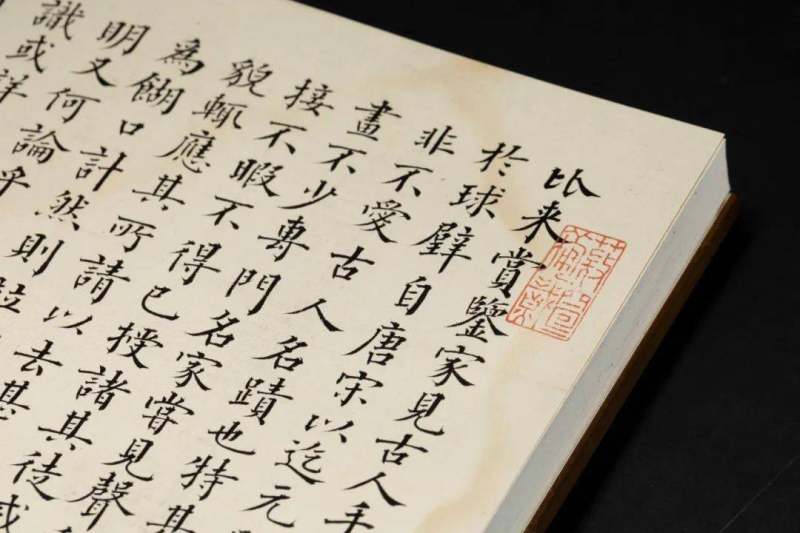 比来賞鑒家見古人手
於球璧自唐宋以迄元
非不愛古人名蹟也特其
畫不少專門名家嘗見聲
接不暇不得已授諸其徒或
貌輒應其所請以去甚
為餬口計然則
明又何論乎
識或詳